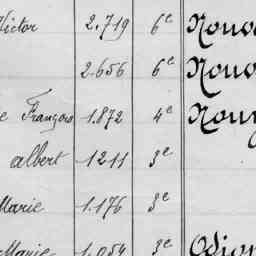 Victor 2.719 6e Nouv
2.656 6e Nouv
e François 1.872 4e Nouv
albert 1211 3e
Marie 1.176 3e
Marie 1.054 3e Odion